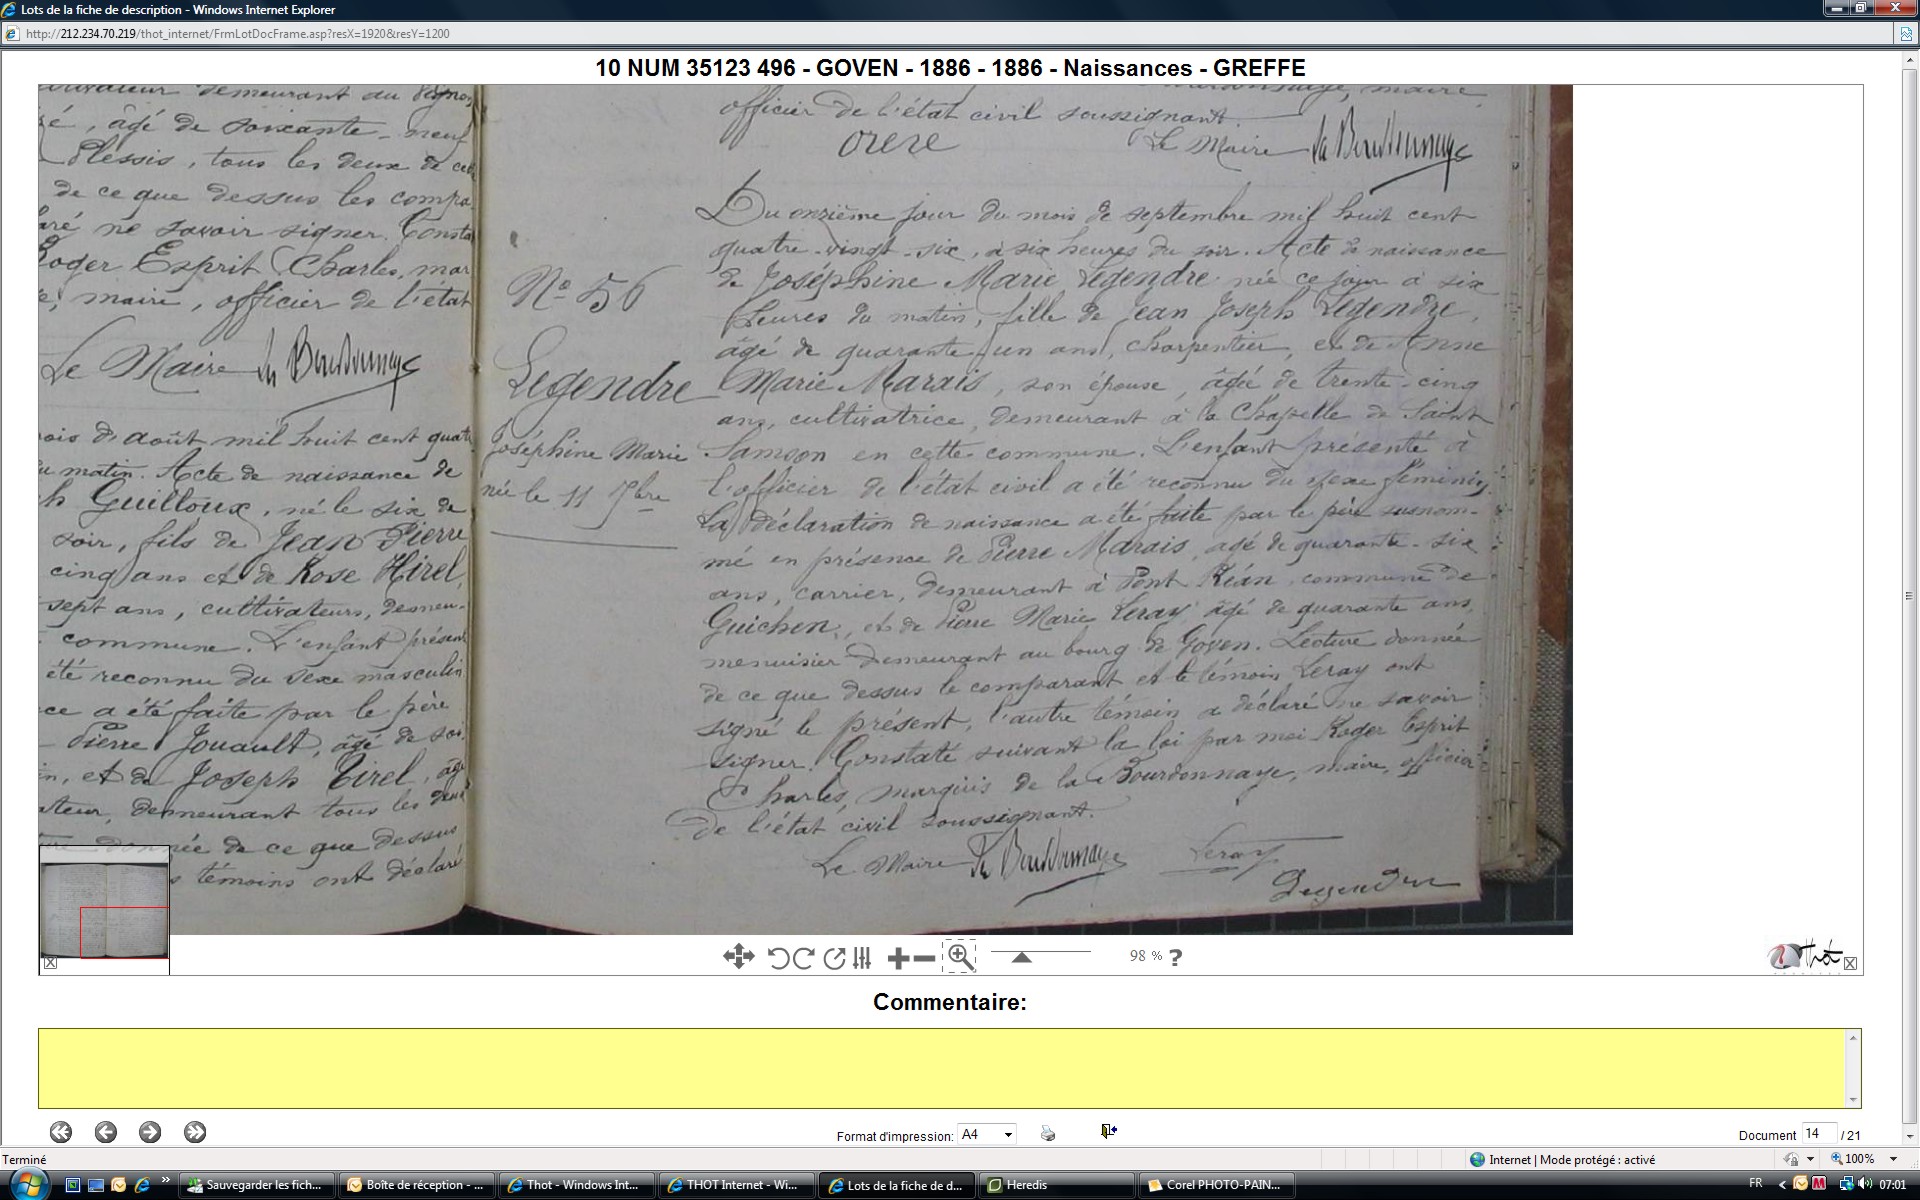 Lots de la fiche de description - Windows Internet Explorer
http://212.234.70.219/thot_internet/FrmLotDocFrame.asp?resX=1920&resY=1200
10 NUM 35123 496 - GOVEN - 1886 - 1886 - Naissances - GREFFE
demeurant au
âgé de soixante-neuf
Plessis, tous les deux de ce
de ce que dessus les compa
ré ne savoir signer. Consta
Roger Esprit Charles, mar
maire, officier de l'état
Le Maire
ois d'août mil huit cent quat
u matin. Acte de naissance de
h Guilloux, né le six de
soir, fils de Jean Pierre
cinq ans et de Rose Hirel,
sept ans, cultivateurs, demeu-
commune. L'enfant présent
été reconnu du sexe masculin
ce a été faite par le père
Pierre Jouault, âgé de soi
in, et de Joseph Tirel, âgé
ateur, demeurant tous les deux
donnée de ce que dessus
s témoins ont déclaré
maire,
officier de l'état civil soussignant.
Le Maire
No 56
Legendre
Joséphine Marie
née le 11 7bre
Du onzième jour du mois de septembre mil huit cent
quatre-vingt-six, à six heures du soir. Acte de naissance
de Joséphine Marie Legendre née ce jour à six
heures du matin, fille de Jean Joseph Legendre,
âgé de quarante un ans, charpentier, et de Anne
Marie Marais, son épouse, âgée de trente-cinq
ans, cultivatrice, demeurant à la Chapelle de Saint
Samson en cette commune. L'enfant présenté à
l'officier de l'état civil a été reconnu du sexe féminin.
La déclaration de naissance a été faite par le père susnom-
mé en présence de Pierre Marais, âgé de quarante-six
ans, carrier, demeurant à Pont Réan, commune de
Guichen, et de Pierre Marie Leray âgé de quarante ans,
menuisier demeurant au bourg de Goven. Lecture donnée
de ce que dessus le comparant et le témoin Leray ont
signé le présent, l'autre témoin a déclaré ne savoir
signer. Constaté suivant la loi par moi Roger Esprit
Charles, marquis de la Bourdonnaye, maire, officier
de l'état civil soussignant.
Le Maire
Leray
Legendre
98 % ?
Thot
Commentaire:
Format d'impression: A4
Document 14 / 21
Terminé
Internet | Mode protégé : activé
100%
Sauvegarder les fich...
Boîte de réception - ...
Thot - Windows Int...
THOT Internet - Wi...
Lots de la fiche de d...
Heredis
Corel PHOTO-PAIN...
FR
07:01